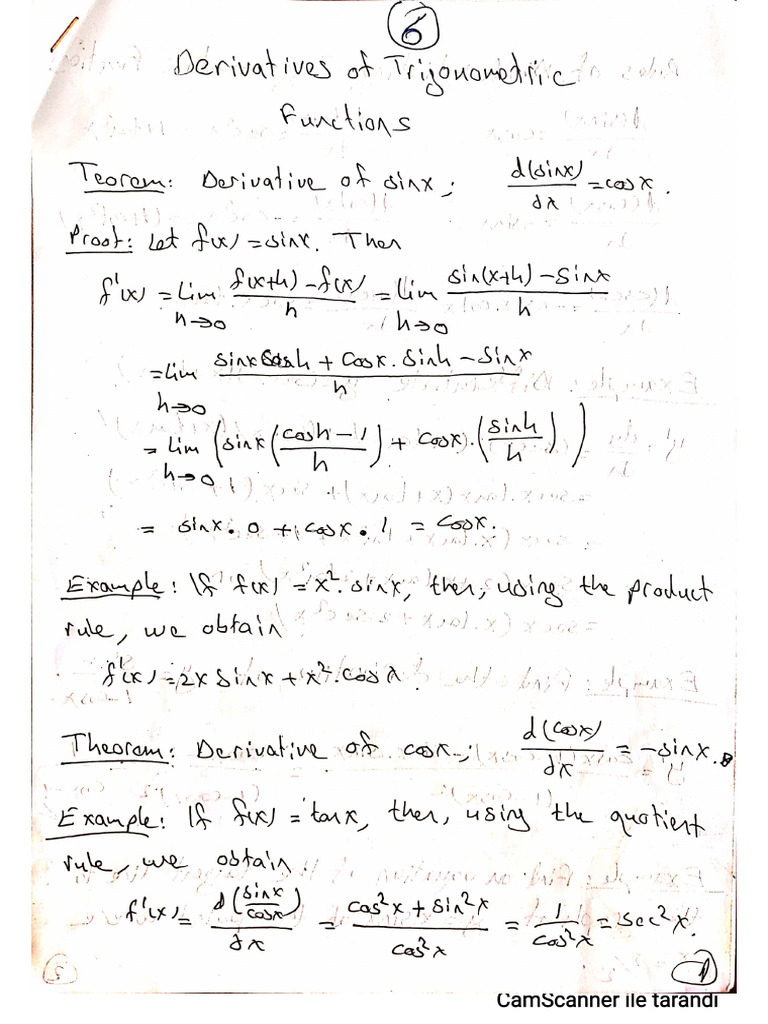 6
Derivatives of Trigonometric
Functions
Teorem: Derivative of sinx; d(sinx)/dx = cosx.
Proof: Let f(x) = sinx. Then
f'(x) = lim h→0 (f(x+h) - f(x))/h = lim h→0 (sin(x+h) - sinx)/h
= lim h→0 (sinx cosh + cosx . sinh - sinx)/h
= lim h→0 (sinx ((cosh - 1)/h) + cosx . (sinh/h))
= sinx . 0 + cosx . 1 = cosx.
Example: If f(x) = x². sinx, then, using the product
rule, we obtain
f'(x) = 2x sinx + x². cosx.
Theorem: Derivative of cosx; d(cosx)/dx = -sinx.
Example: If f(x) = tanx, then, using the quotient
rule, we obtain
f'(x) = d(sinx/cosx)/dx = (cos²x + sin²x)/cos²x = 1/cos²x = sec²x.
1
CamScanner ile tarandı